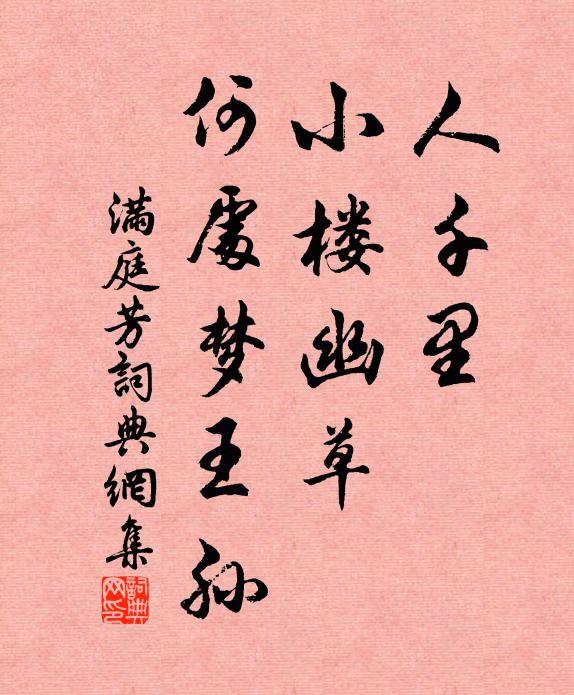 人千里
小楼幽草
何處梦王孙
满庭芳詞典網集
詞典
网印